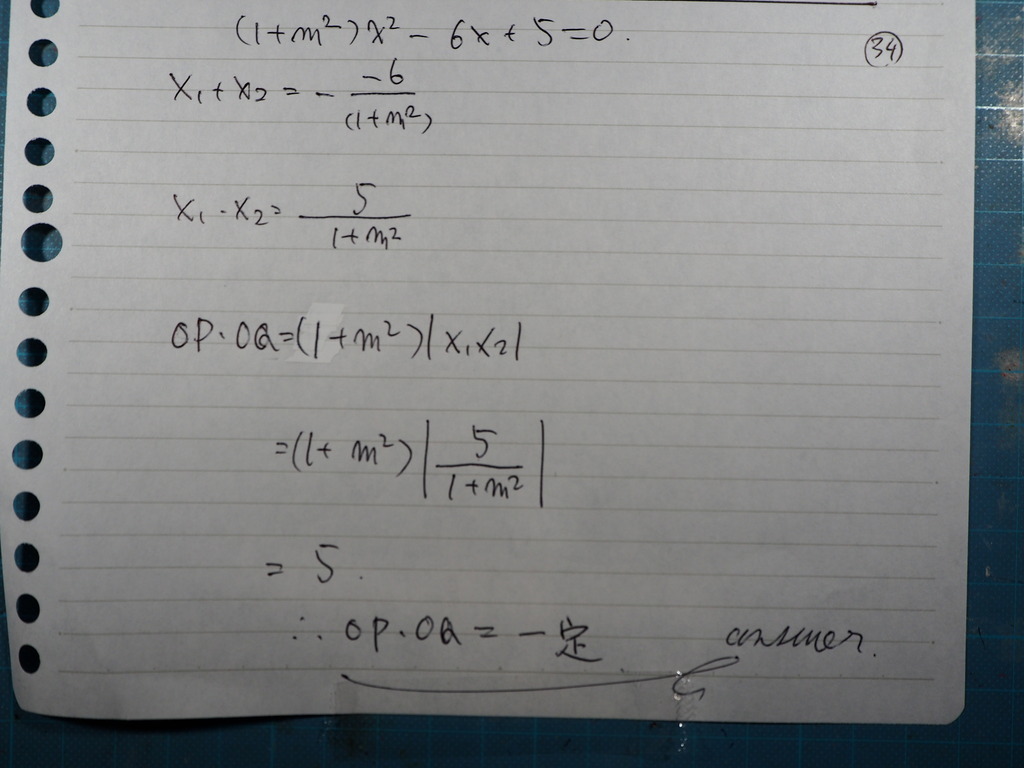 (1+m²)x² - 6x + 5 = 0.
㉞
x₁ + x₂ = - -6/(1+m²)
x₁ · x₂ = 5/1+m²
OP·OQ=(1+m²)|x₁x₂|
=(1+m²)|5/1+m²|
= 5.
∴ OP·OQ = 一定 answer.